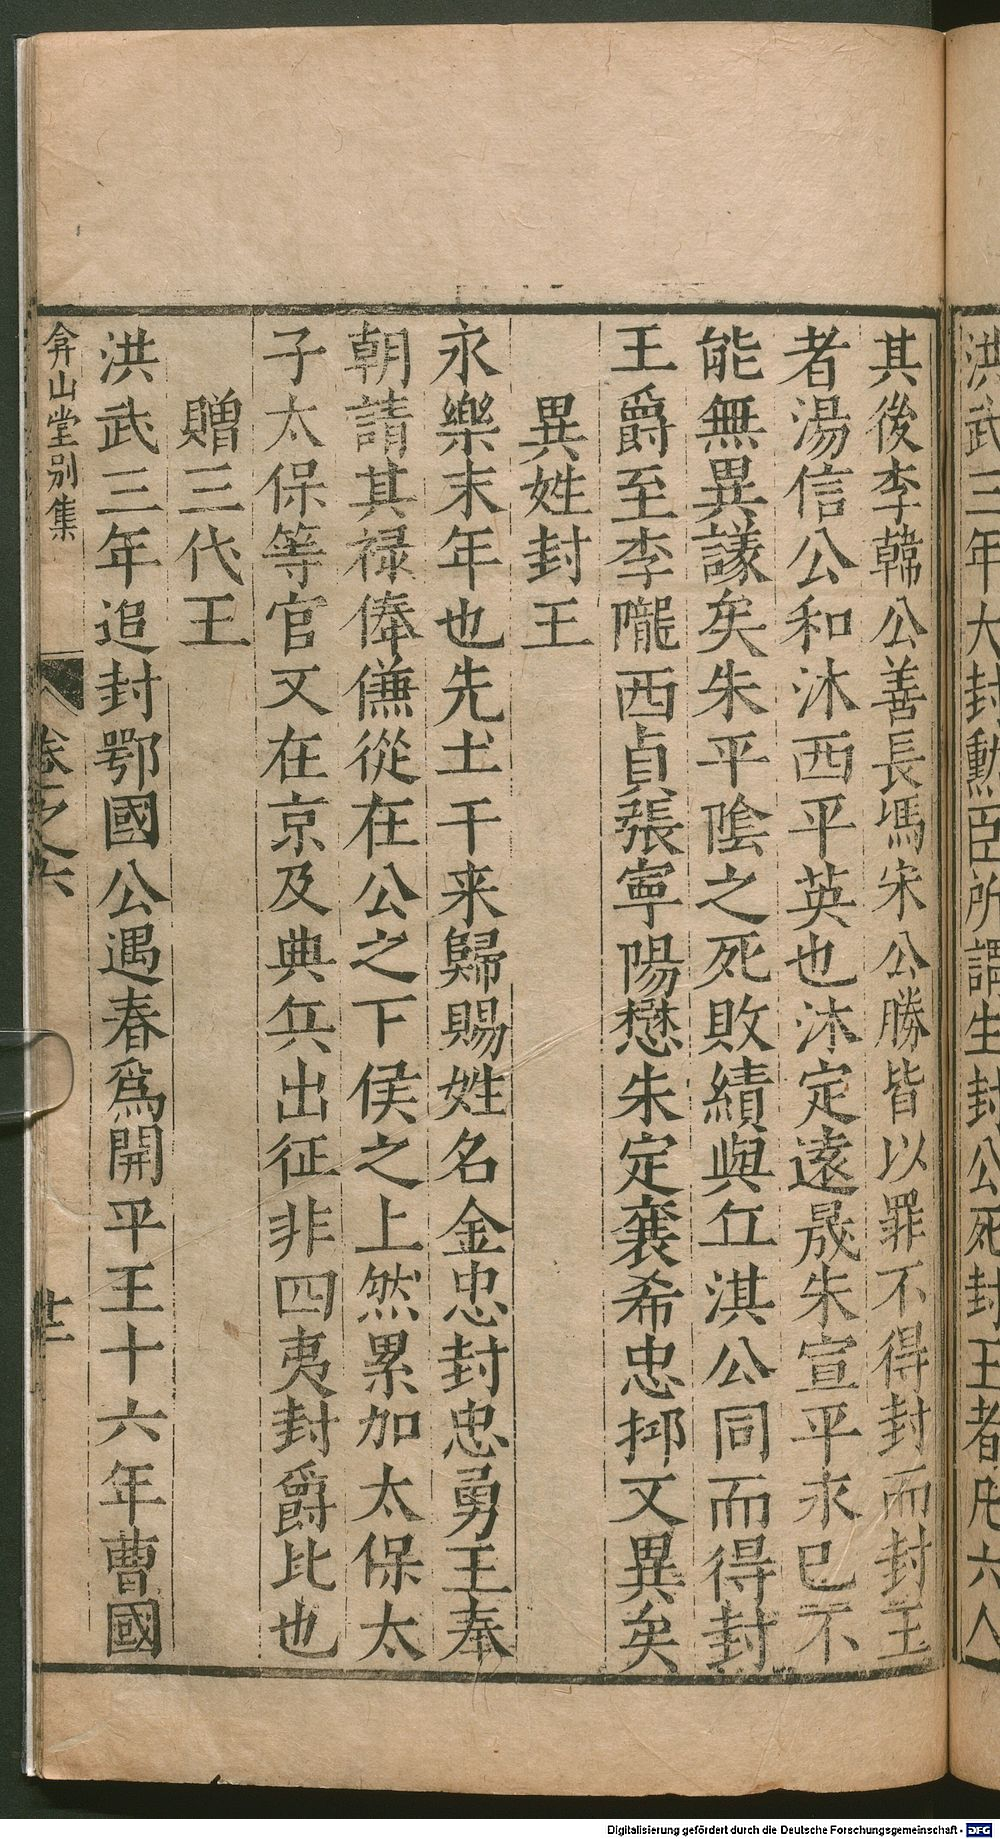 洪武三年大封勲臣所謂生封公死封王者凡六人
其後李韓公善長馮宋公勝皆以罪不得封而封王
者湯信公和沐西平英也沐定遠晟朱宣平永已不
能無異議矣朱平陰之死敗績與丘淇公同而得封
王爵至李隴西貞張寧陽懋朱定襄希忠抑又異矣
異姓封王
永樂末年也先土干来歸賜姓名金忠封忠勇王奉
朝請其祿俸傔從在公之下侯之上然累加太保太
子太保等官又在京及典兵出征非四夷封爵比也
贈三代王
洪武三年追封鄂國公遇春爲開平王十六年曹國
弇山堂别集
卷之六
廿二
Digitalisierung gefördert durch die Deutsche Forschungsgemeinschaft - DFG